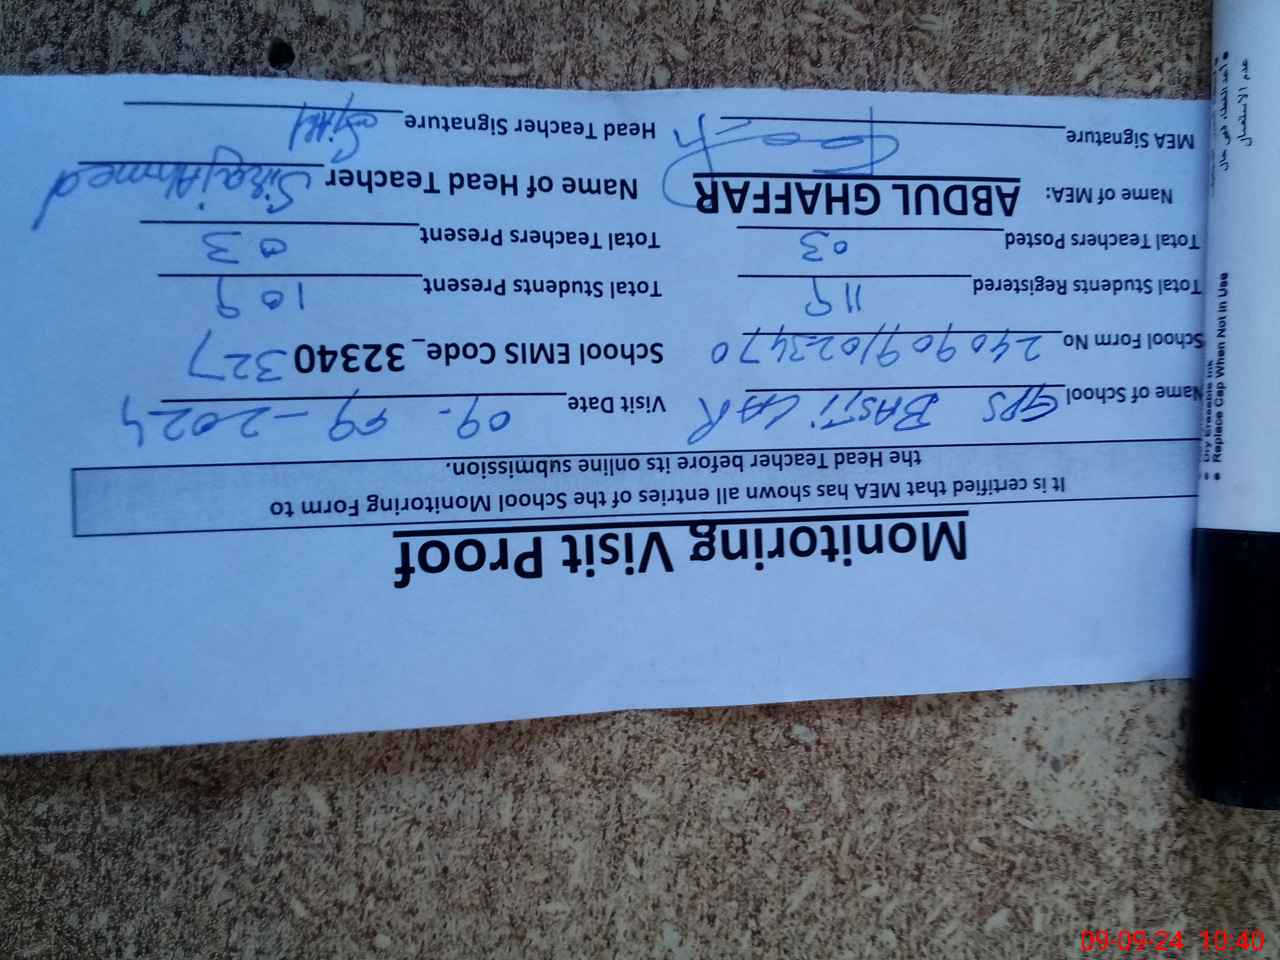 Monitoring Visit Proof
It is certified that MEA has shown all entries of the School Monitoring Form to
the Head Teacher before its online submission.
Name of School GPS BASTI LAR Visit Date 09-09-2024
School Form No 240909/023470 School EMIS Code_ 32340327
Total Students Registered 119 Total Students Present 109
Total Teachers Posted 03 Total Teachers Present 03
Name of MEA: ABDUL GHAFFAR Name of Head Teacher Siraj Ahmed
MEA Signature Head Teacher Signature
Dry Erasable Ink
• Replace Cap When Not in Use
عدم الاستعمال
09-09-24 10:40